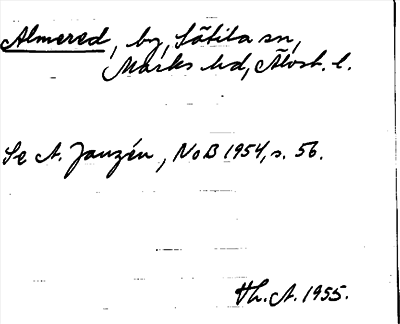 Almered, by, Sätila sn,
Marks hd, Älvsb. l.
Se A. Janzén, NoB 1954, s. 56.
Th. A. 1955.